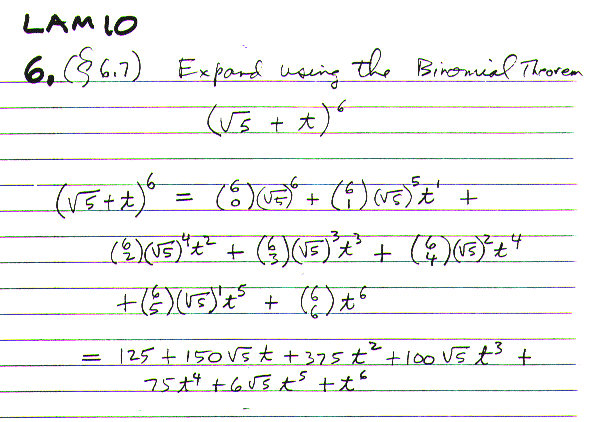 LAM 10
6. (§ 6.7) Expand using the Binomial Theorem
(√5 + t)⁶
(√5+t)⁶ = (6 0)(√5)⁶ + (6 1)(√5)⁵t¹ +
(6 2)(√5)⁴t² + (6 3)(√5)³t³ + (6 4)(√5)²t⁴
+(6 5)(√5)¹t⁵ + (6 6)t⁶
= 125 + 150√5 t + 375t² + 100√5 t³ +
75t⁴ + 6√5 t⁵ + t⁶